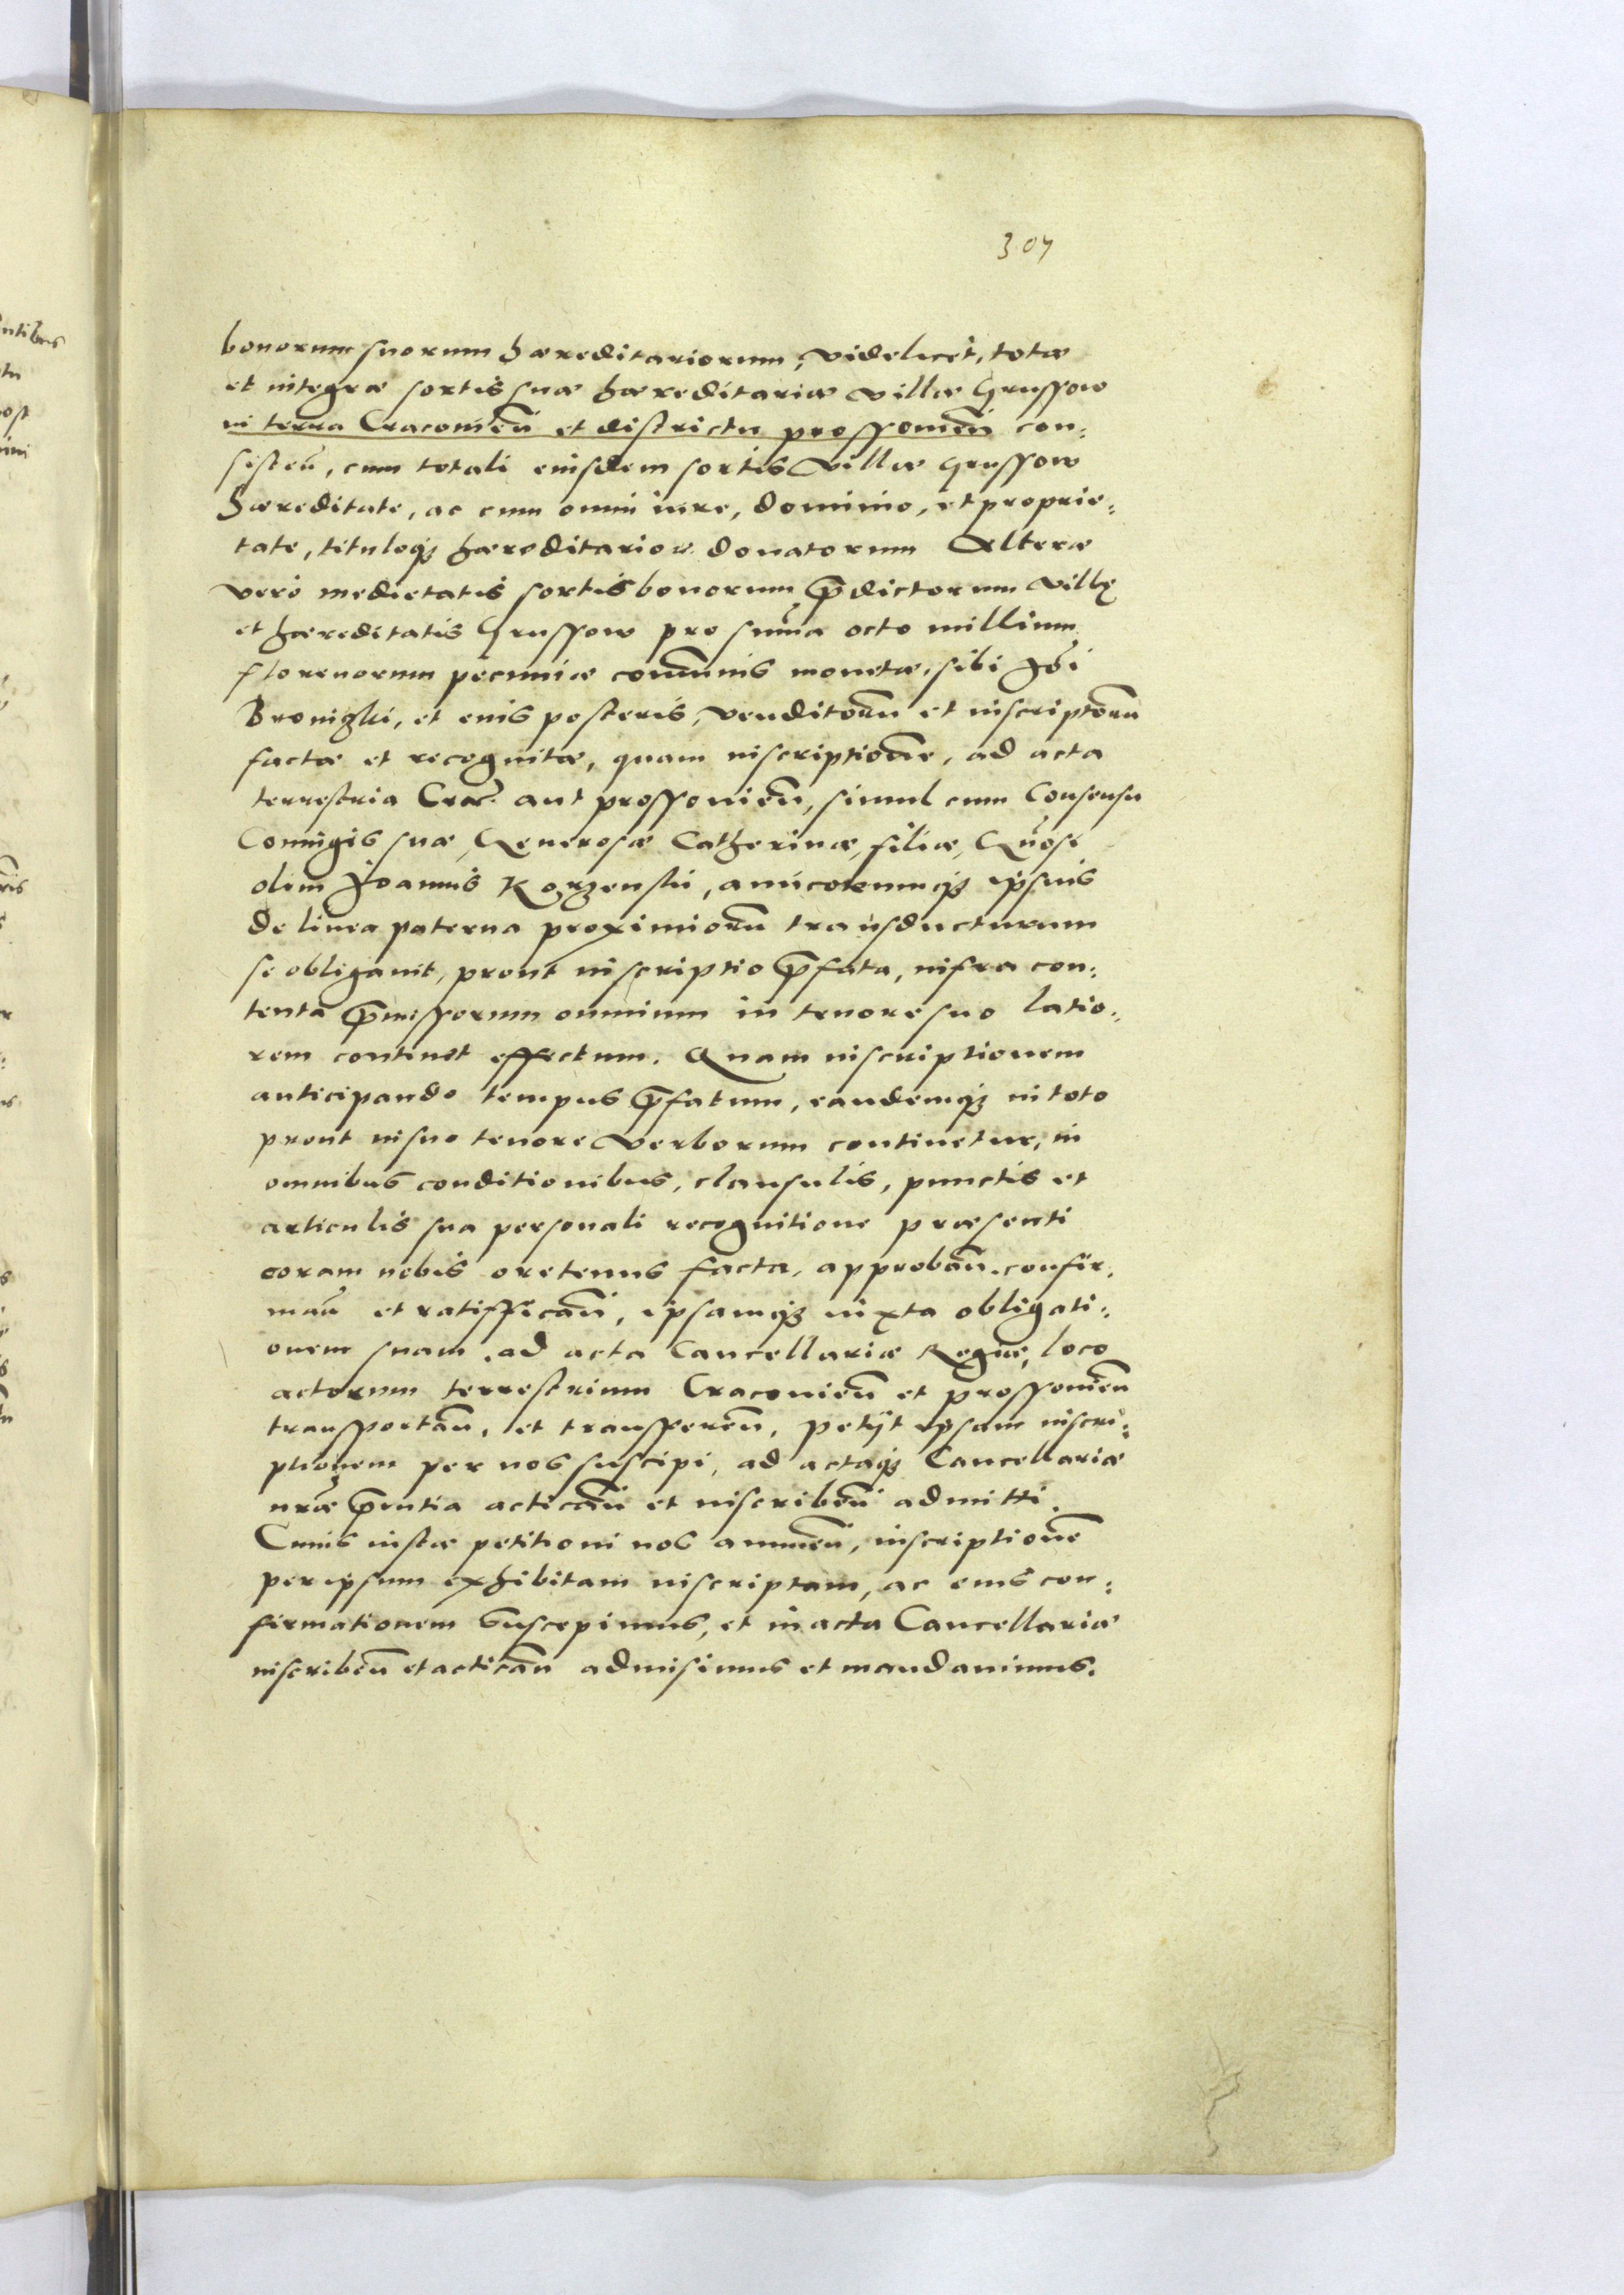 307
bonorum suorum hæreditariorum, videlicet, totæ
et integræ sortis suæ hæreditariæ villæ Grussow
in terra Cracouien̄ et districtu prossouien̄ con:
sisten̄, cum totali eiusdem sortis villæ Grussow
hæreditate, ac cum omni iure, dominio, et proprie:
tate, tituloq3 hæreditario donatorum Alteræ
vero medietatis sortis bonorum p̄dictorum villę
et hæreditatis Grussow pro sum̄a octo millium
florenorum pecuniæ com̄unis monetæ, sibi
Bronizki, et eius posteris, venditorū et inscriptorū
factæ et recognitæ, quam inscriptionē, ad acta
terrestria Crac. aut prossouien̄, simul cum Consensu
Coniugis suæ, Generosæ Catherinæ, filiæ, Gn̄osi
olim Joannis Korzenski, amicorumq3 ipsius
de linea paterna proximiorū transducturum
se obligauit, prout inscriptio p̄fata, infra con:
tenta p̄missorum omnium in tenore suo latio:
rem continet effectum. Quam inscriptionem
anticipando tempus p̄fatum, eandemq3 in toto
prout in suo tenore verborum continetur, in
omnibus conditionibus, clausulis, punctis et
articulis sua personali recognitione præsenti
coram nobis oretenus facta, approbān, confir,
mān et ratifficān, ipsamq3 iuxta obligati:
onem suam, ad acta Cancellariæ Regiæ, loco
actorum terrestrium Cracouien̄ et prossouien̄
transportān, et transferen̄, petijt ipsam inscri:
ptionem per nos suscipi, ad actaq3 Cancellariæ
nr̄æ p̄ntia acticān et inscriben̄ admitti.
Cuius iustæ petitioni nos annuen̄, inscriptionē
per ipsum exhibitam inscriptam, ac eius con:
firmationem suscepimus, et in acta Cancellariæ
inscriben̄ et acticān admisimus et mandauimus.